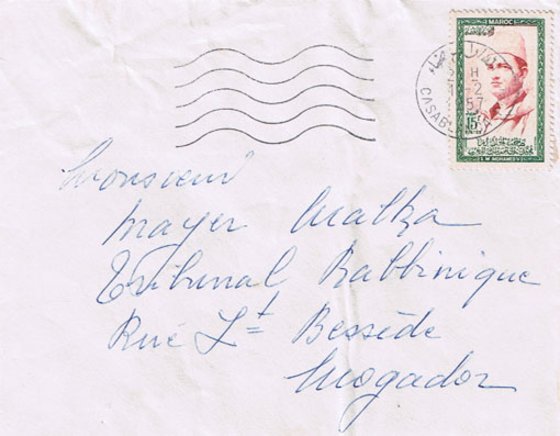 MAROC
H
-2
57
CASABLANCA
15F
S M MOHAMED V
Monsieur
Mayer Malka
Tribunal Rabbinique
Rue Lt Bessède
Mogador